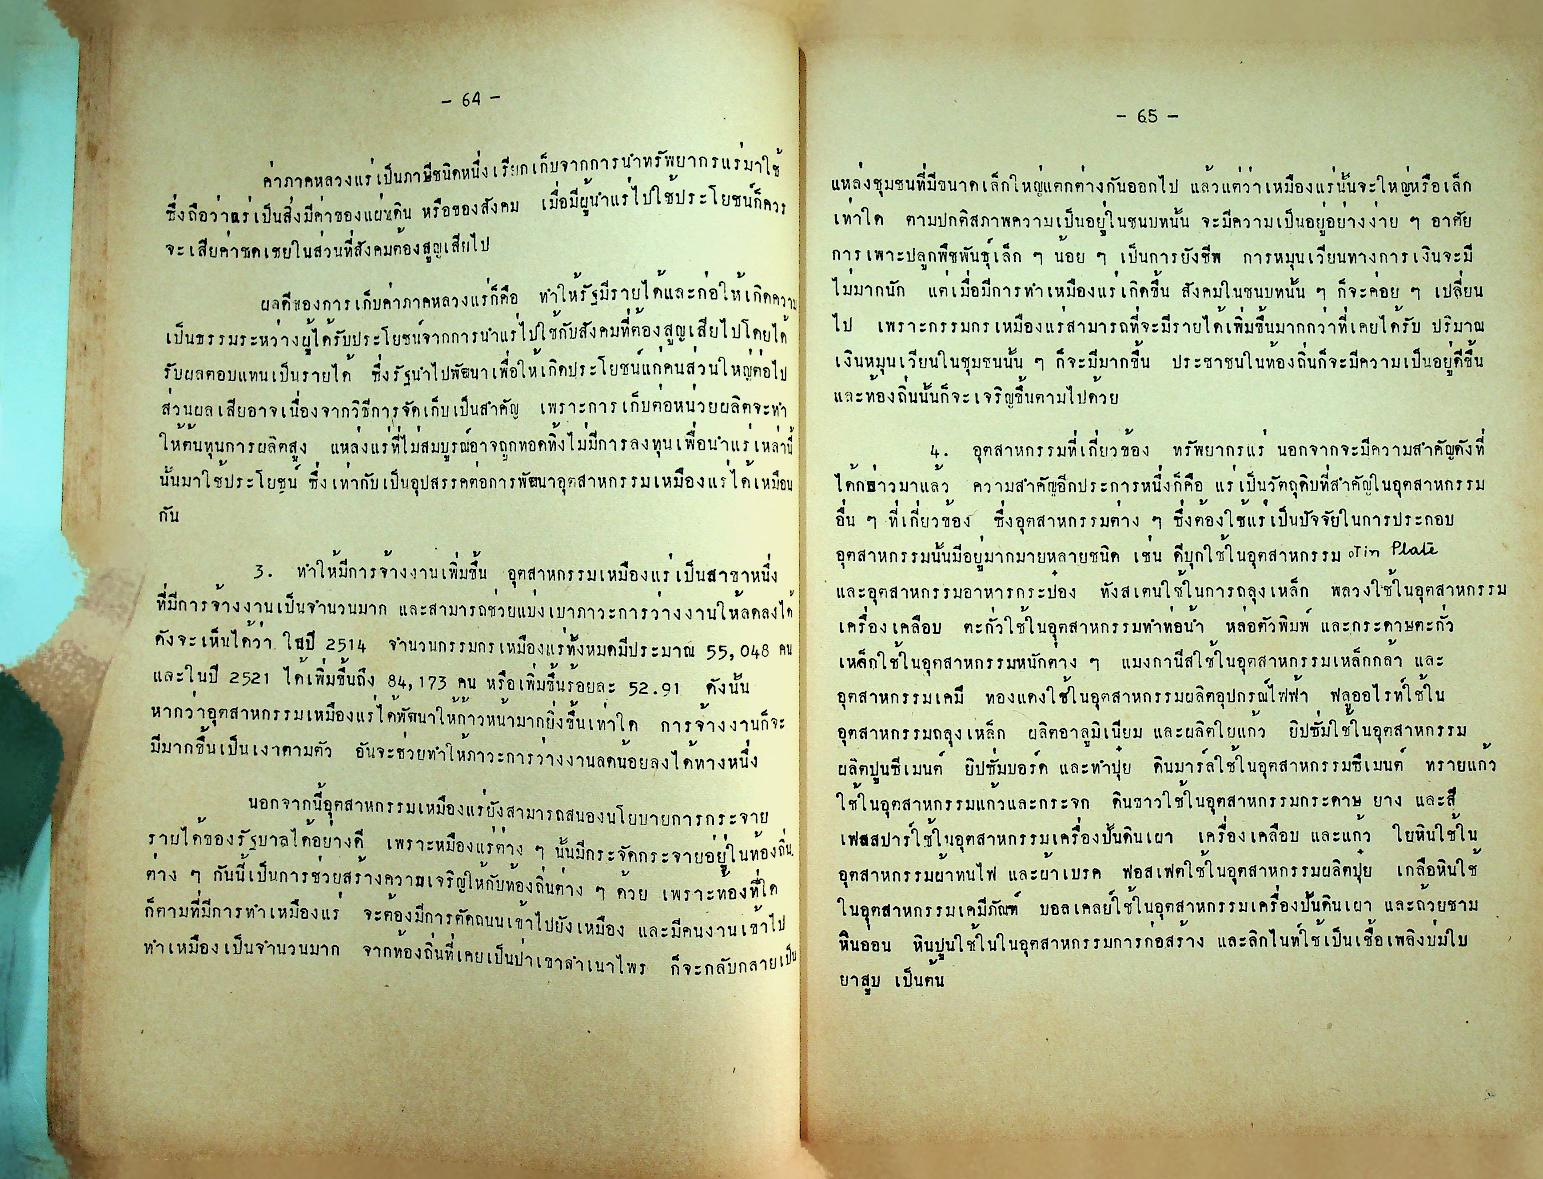 - 64 -
ค่าภาคหลวงแร่เป็นภาษีชนิดหนึ่งเรียกเก็บจากการนำทรัพยากรแร่มาใช้
ซึ่งถือว่าแร่เป็นสิ่งมีค่าของแผ่นดิน หรือของสังคม เมื่อมีผู้นำแร่ไปใช้ประโยชน์ก็ควร
จะเสียค่าชดเชยในส่วนที่สังคมต้องสูญเสียไป
ผลดีของการเก็บค่าภาคหลวงแร่ก็คือ ทำให้รัฐมีรายได้และก่อให้เกิดความ
เป็นธรรมระหว่างผู้ได้รับประโยชน์จากการนำแร่ไปใช้กับสังคมที่ต้องสูญเสียไปโดยได้
รับผลตอบแทนเป็นรายได้ ซึ่งรัฐนำไปพัฒนาเพื่อให้เกิดประโยชน์แก่คนส่วนใหญ่ต่อไป
ส่วนผลเสียอาจเนื่องจากวิธีการจัดเก็บเป็นสำคัญ เพราะการเก็บต่อหน่วยผลิตจะทำ
ให้ต้นทุนการผลิตสูง แหล่งแร่ที่ไม่สมบูรณ์อาจถูกทอดทิ้งไม่มีการลงทุนเพื่อนำแร่เหล่านี้
นั้นมาใช้ประโยชน์ ซึ่งเท่ากับเป็นอุปสรรคต่อการพัฒนาอุตสาหกรรมเหมืองแร่ได้เหมือน
กัน
3. ทำให้มีการจ้างงานเพิ่มขึ้น อุตสาหกรรมเหมืองแร่เป็นสาขาหนึ่ง
ที่มีการจ้างงานเป็นจำนวนมาก และสามารถช่วยแบ่งเบาภาวะการว่างงานให้ลดลงได้
ดังจะเห็นได้ว่า ในปี 2514 จำนวนกรรมกรเหมืองแร่ทั้งหมดมีประมาณ 55,048 คน
และในปี 2521 ได้เพิ่มขึ้นถึง 84,173 คน หรือเพิ่มขึ้นร้อยละ 52.91 ดังนั้น
หากว่าอุตสาหกรรมเหมืองแร่ได้พัฒนาให้ก้าวหน้ามากยิ่งขึ้นเท่าใด การจ้างงานก็จะ
มีมากขึ้นเป็นเงาตามตัว อันจะช่วยทำให้ภาวะการว่างงานลดน้อยลงได้ทางหนึ่ง
นอกจากนี้อุตสาหกรรมเหมืองแร่ยังสามารถสนองนโยบายการกระจาย
รายได้ของรัฐบาลได้อย่างดี เพราะเหมืองแร่ต่าง ๆ นั้นมีกระจัดกระจายอยู่ในท้องถิ่น
ต่าง ๆ กันนี้เป็นการช่วยสร้างความเจริญให้กับท้องถิ่นต่าง ๆ ด้วย เพราะท้องที่ใด
ก็ตามที่มีการทำเหมืองแร่ จะต้องมีการตัดถนนเข้าไปยังเหมือง และมีคนงานเข้าไป
ทำเหมืองเป็นจำนวนมาก จากท้องถิ่นที่เคยเป็นป่าเขาลำเนาไพร ก็จะกลับกลายเป็น
- 65 -
แหล่งชุมชนที่มีขนาดเล็กใหญ่แตกต่างกันออกไป แล้วแต่ว่าเหมืองแร่นั้นจะใหญ่หรือเล็ก
เท่าใด ตามปกติสภาพความเป็นอยู่ในชนบทนั้น จะมีความเป็นอยู่อย่างง่าย ๆ อาศัย
การเพาะปลูกพืชพันธุ์เล็ก ๆ น้อย ๆ เป็นการยังชีพ การหมุนเวียนทางการเงินจะมี
ไม่มากนัก แต่เมื่อมีการทำเหมืองแร่เกิดขึ้น สังคมในชนบทนั้น ๆ ก็จะค่อย ๆ เปลี่ยน
ไป เพราะกรรมกรเหมืองแร่สามารถที่จะมีรายได้เพิ่มขึ้นมากกว่าที่เคยได้รับ ปริมาณ
เงินหมุนเวียนในชุมชนนั้น ๆ ก็จะมีมากขึ้น ประชาชนในท้องถิ่นก็จะมีความเป็นอยู่ดีขึ้น
และท้องถิ่นนั้นก็จะเจริญขึ้นตามไปด้วย
4. อุตสาหกรรมที่เกี่ยวข้อง ทรัพยากรแร่ นอกจากจะมีความสำคัญดังที่
ได้กล่าวมาแล้ว ความสำคัญอีกประการหนึ่งก็คือ แร่เป็นวัตถุดิบที่สำคัญในอุตสาหกรรม
อื่น ๆ ที่เกี่ยวข้อง ซึ่งอุตสาหกรรมต่าง ๆ ซึ่งต้องใช้แร่เป็นปัจจัยในการประกอบ
อุตสาหกรรมนั้นมีอยู่มากมายหลายชนิด เช่น ดีบุกใช้ในอุตสาหกรรม Tin Plate
และอุตสาหกรรมอาหารกระป๋อง ทังสเตนใช้ในการถลุงเหล็ก พลวงใช้ในอุตสาหกรรม
เครื่องเคลือบ ตะกั่วใช้ในอุตสาหกรรมทำท่อน้ำ หล่อตัวพิมพ์ และกระดาษตะกั่ว
เหล็กใช้ในอุตสาหกรรมหนักต่าง ๆ แมงกานีสใช้ในอุตสาหกรรมเหล็กกล้า และ
อุตสาหกรรมเคมี ทองแดงใช้ในอุตสาหกรรมผลิตอุปกรณ์ไฟฟ้า ฟลูออไรท์ใช้ใน
อุตสาหกรรมถลุงเหล็ก ผลิตอาลูมิเนียม และผลิตใยแก้ว ยิปซั่มใช้ในอุตสาหกรรม
ผลิตปูนซีเมนต์ ยิปซั่มบอร์ด และทำปุ๋ย ดินมาร์ลใช้ในอุตสาหกรรมซีเมนต์ ทรายแก้ว
ใช้ในอุตสาหกรรมแก้วและกระจก ดินขาวใช้ในอุตสาหกรรมกระดาษ ยาง และสี
เฟลสปาร์ใช้ในอุตสาหกรรมเครื่องปั้นดินเผา เครื่องเคลือบ และแก้ว ใยหินใช้ใน
อุตสาหกรรมผ้าทนไฟ และผ้าเบรค ฟอสเฟตใช้ในอุตสาหกรรมผลิตปุ๋ย เกลือหินใช้
ในอุตสาหกรรมเคมีภัณฑ์ บอลเคลย์ใช้ในอุตสาหกรรมเครื่องปั้นดินเผา และถ้วยชาม
หินอ่อน หินปูนใช้ในในอุตสาหกรรมการก่อสร้าง และลิกไนท์ใช้เป็นเชื้อเพลิงบ่มใบ
ยาสูบ เป็นต้น